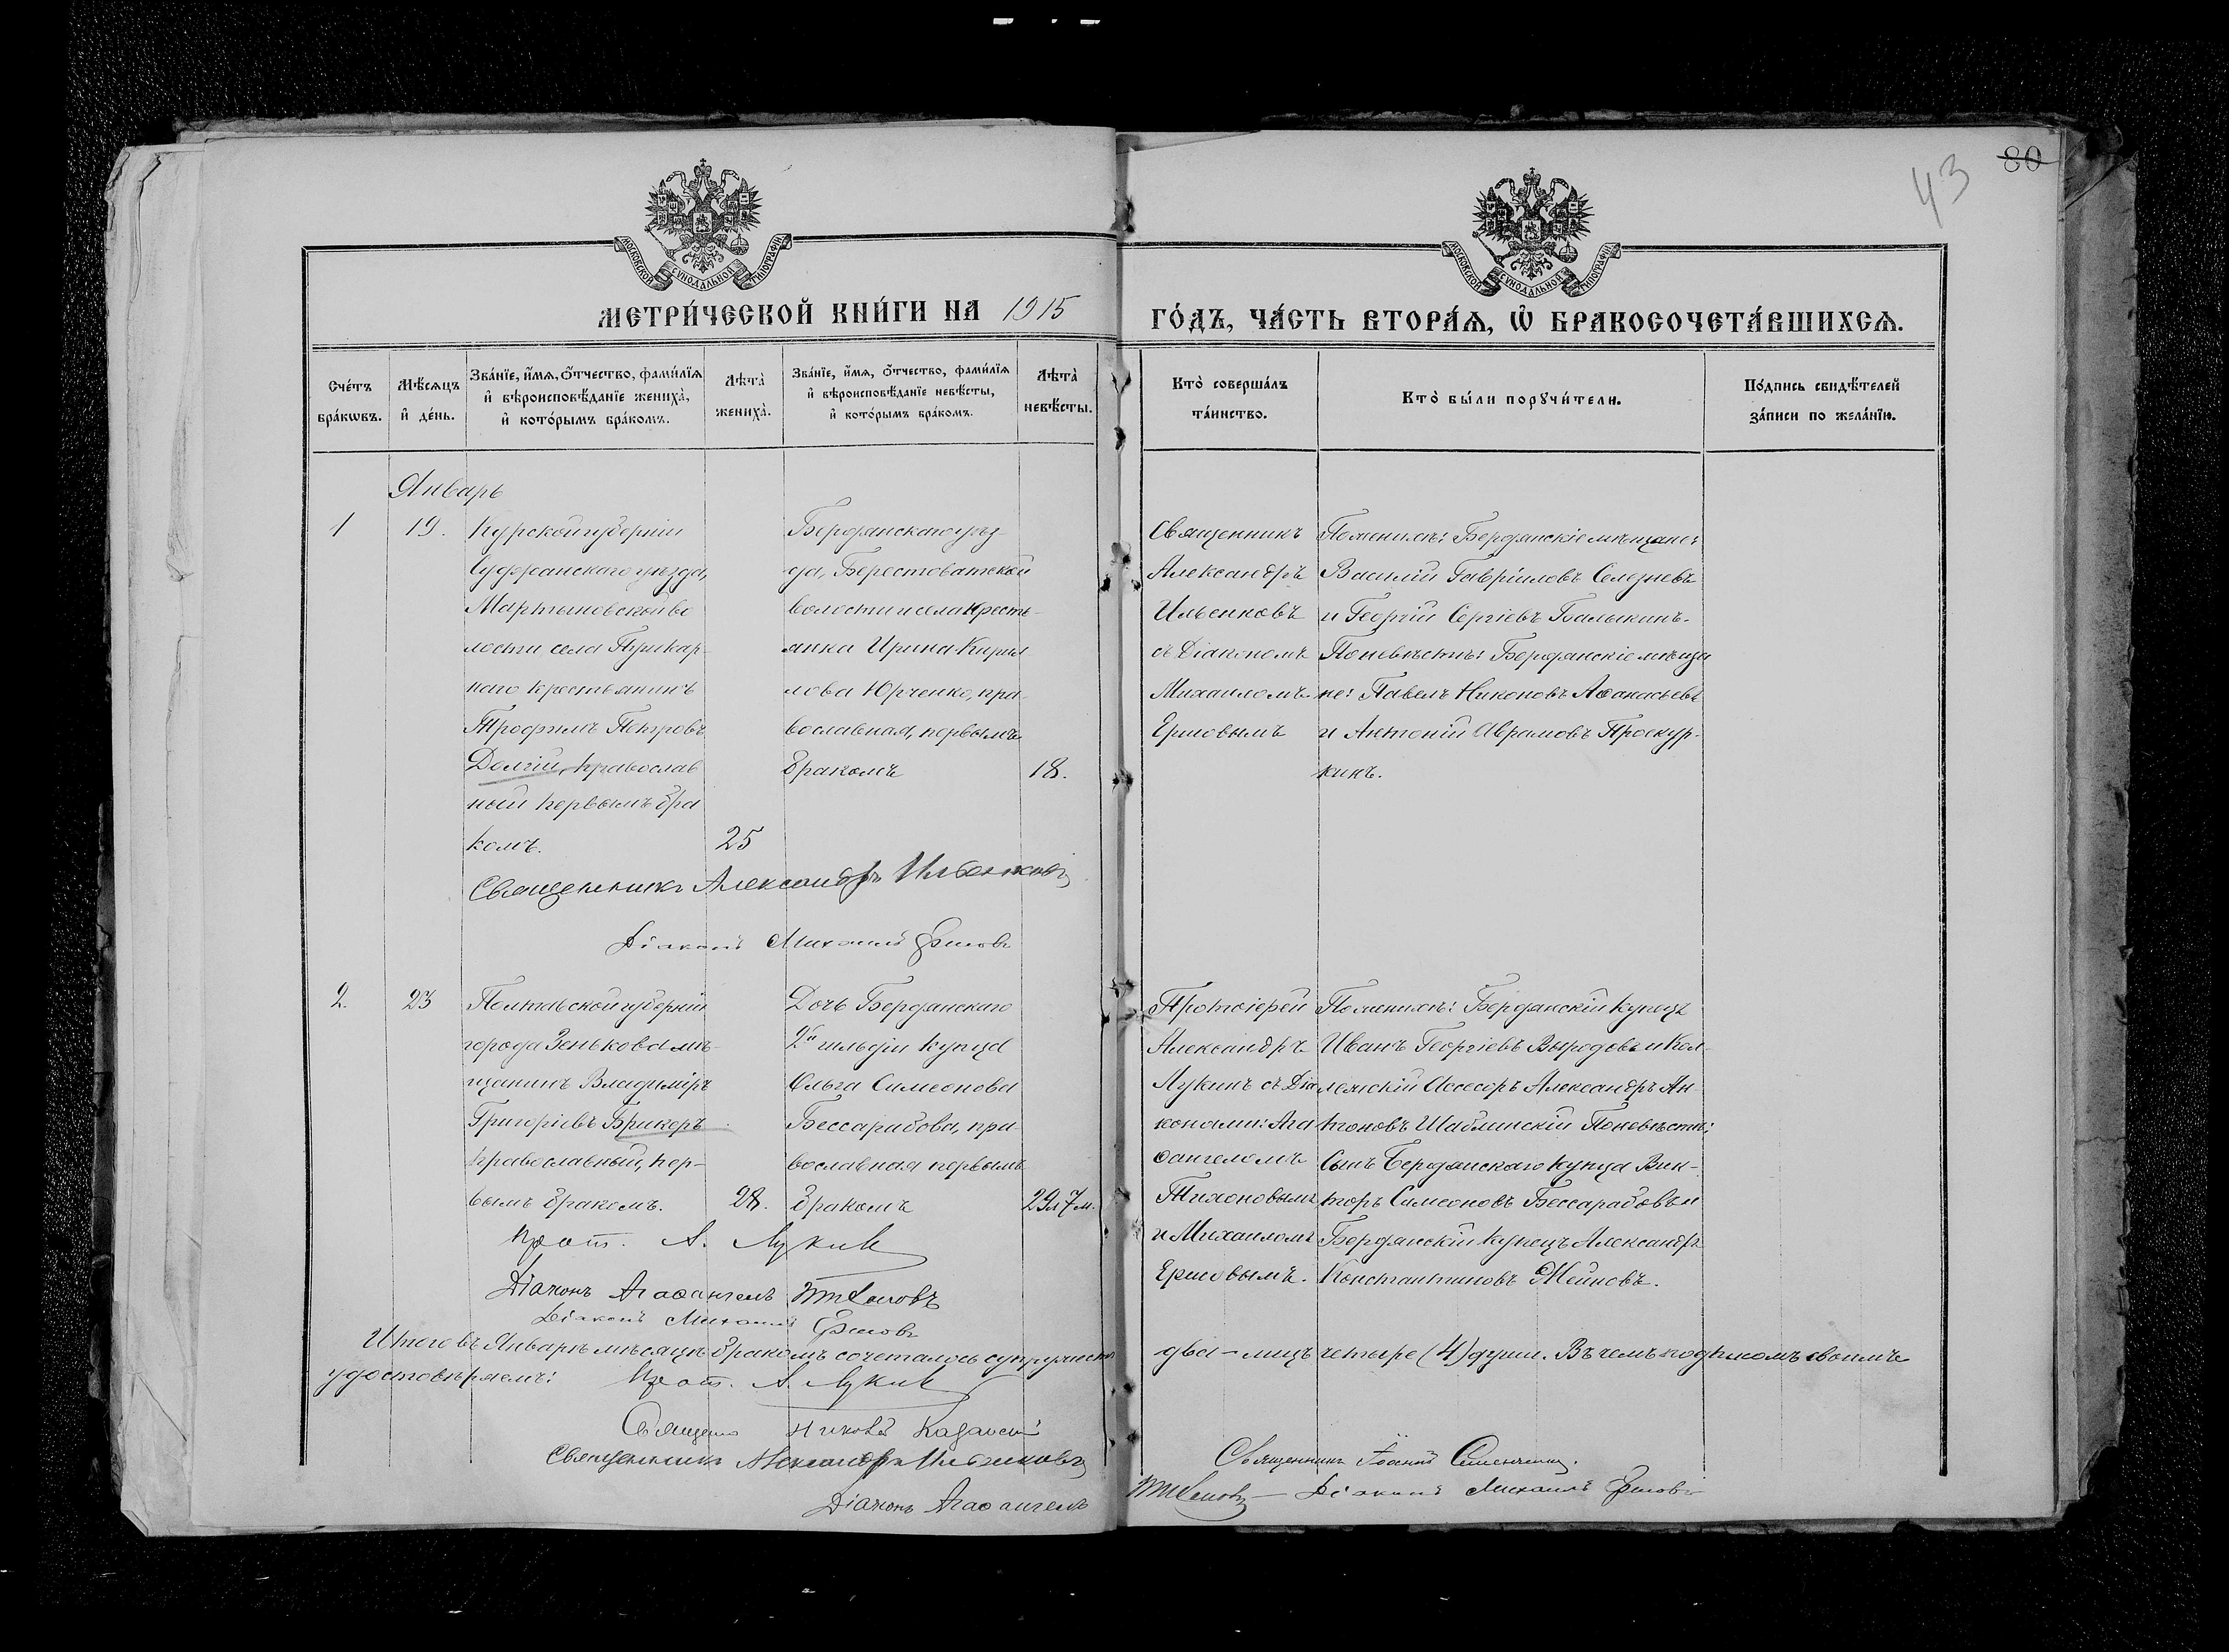 43 80
МОСКОВСКОЙ СУНОДАЛЬНОЙ ТИПОГРАФІИ
МОСКОВСКОЙ СУНОДАЛЬНОЙ ТИПОГРАФІИ
МЕТРИ́ЧЕСКОЙ КНИ́ГИ НА 1915
ГО́ДЪ, ЧА́СТЬ ВТОРА́Ѧ, Ѡ҆ БРАКОСОЧЕТА́ВШИХСѦ.
Сче́тъ бра́кѡвъ.
Мѣ́сяцъ и҆ де́нь.
Зва́нїе, и҆́мѧ, ѻ҆́тчество, фами́лїѧ
и҆ вѣроисповѣ́данїе жениха̀,
и҆ кото́рымъ бра́комъ.
Лѣта̀ жениха̀.
Зва́нїе, и҆́мѧ, ѻ҆́тчество, фами́лїѧ
и҆ вѣроисповѣ́данїе невѣ́сты,
и҆ кото́рымъ бра́комъ.
Лѣта̀ невѣ́сты.
Кто̀ соверша́лъ
та́инство.
Кто̀ бы́ли порꙋчи́тели.
По́дпись свидѣ́телей
за́писи по жела́нїю.
Январь
1
19.
Курской губерніи
Суджанскаго уѣзда,
Мартыновской во
лости села Прикар-
наго крестьянинъ
Трофимъ Петровъ
Долгій, православ
ный первымъ бра
комъ.
25
Бердянскаго уѣз-
да, Берестоватской
волости и села кресть-
янка Ирина Кирил
лова Юрченко, пра-
вославная, первымъ
бракомъ
18.
Священникъ
Александръ
Ильенковъ
съ Діакономъ
Михаиломъ
Ершовымъ
По женихѣ: Бердянскіе мѣщане:
Василій Гавріиловъ Селезневъ
и Георгій Сергіевъ Балыкинъ.
По невѣстѣ: Бердянскіе мѣща
не: Павелъ Никоновъ Аѳанасьевъ
и Антоній Аврамовъ Проскур-
кинъ.
Священникъ Александръ Ильенковъ
Діаконъ Михаилъ Ершовъ
2.
23
Полтавской губерніи
города Зенькова мѣ-
щанинъ Владиміръ
Григоріевъ Брикеръ
православный, пер-
вымъ бракомъ.
28.
Дочь Бердянскаго
2й гильдіи купца
Ольга Симеонова
Бессарабова, пра-
вославная первымъ
бракомъ
29 л 7 м.
Протоіерей
Александръ
Лукинъ съ Діа
конами: Ага
ѳангеломъ
Тихоновымъ
и Михаиломъ
Ершовымъ.
По женихѣ: Бердянскій купецъ
Иванъ Георгіевъ Выродовъ и Кол-
лежскій Ассесоръ Александръ Ан-
тоновъ Шаблинскій По невѣстѣ:
Сынъ Бердянскаго купца Вик-
торъ Симеоновъ Бессарабовъ и
Бердянскій купецъ Александръ
Константиновъ Мейновъ.
Прот. А. Лукинъ
Діаконъ Агаѳангелъ Тихоновъ
Діаконъ Михаилъ Ершовъ
Итого въ Январѣ мѣсяцѣ бракомъ сочеталось супружествъ два - лицъ четыре (4) души. Въ чемъ подписомъ своимъ
удостовѣряемъ: Прот. А. Лукинъ
Священ. Казанскій
Священникъ Александръ Ильенковъ
Священникъ Іоаннъ
Діаконъ Агаѳангелъ Тихоновъ Діаконъ Михаилъ Ершовъ